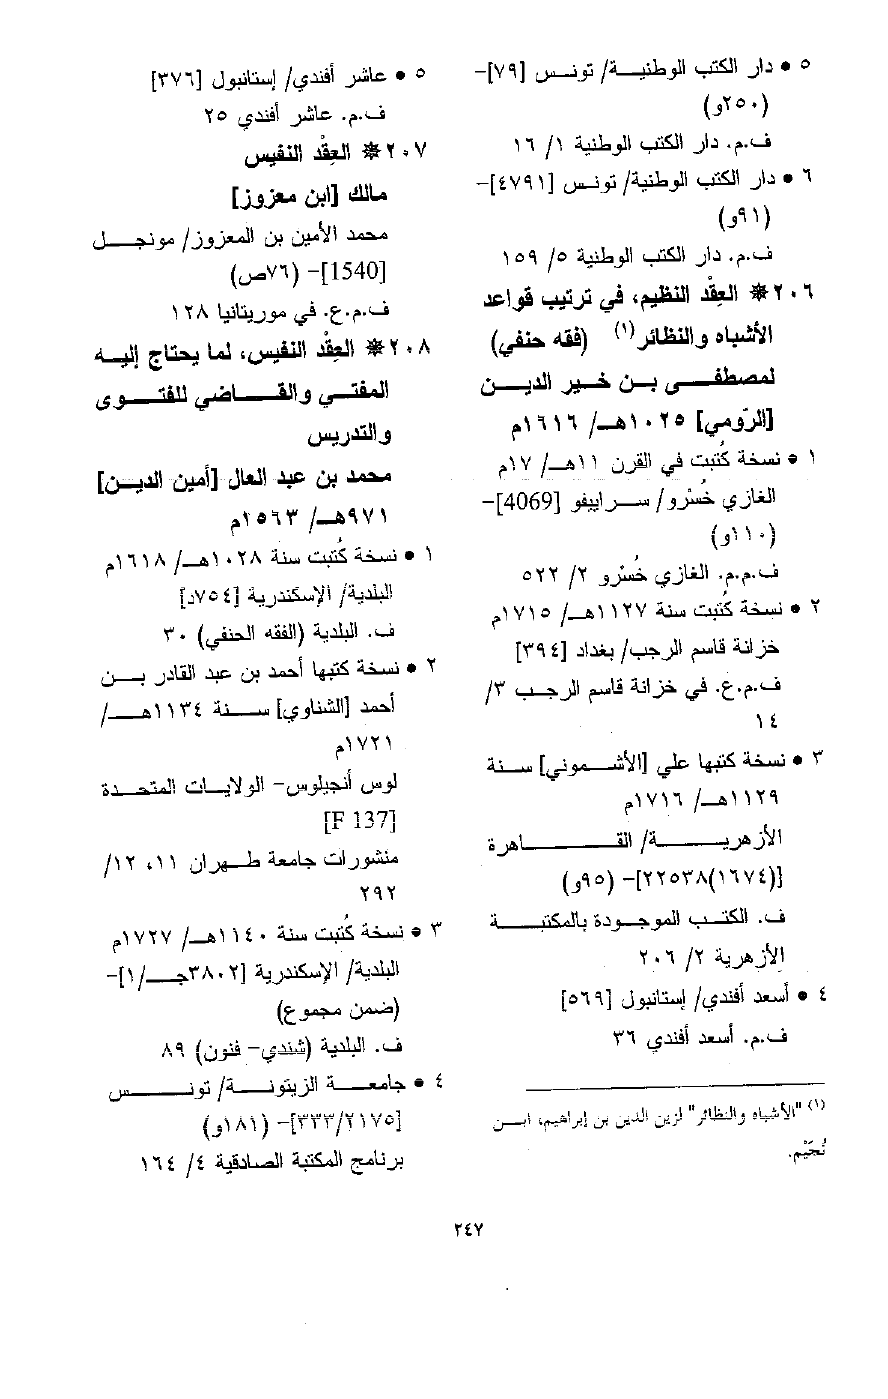 ٥ • دار الكتب الوطنيـــة/ تونــس [٧٩]-
(٢٥٠و)
ف.م. دار الكتب الوطنية ١/ ١٦
٦ • دار الكتب الوطنية/ تونــس [٤٧٩١]-
(٩١و)
ف.م. دار الكتب الوطنية ٥/ ١٥٩
٢٠٦ ❋ العِقْد النظيم، في ترتيب قواعد
الأشباه والنظائر(١) (فقه حنفي)
لمصطفــــى بــن خــير الديــــن
[الرّومي] ١٠٢٥هـ/ ١٦١٦م
١ • نسخة كُتبت في القرن ١١هـ/ ١٧م
الغازي خُسْرو/ ســراييفو [4069]-
(١١٠و)
ف.م.م. الغازي خُسْرو ٢/ ٥٢٢
٢ • نسخة كُتبت سنة ١١٢٧هـ/ ١٧١٥م
خزانة قاسم الرجب/ بغداد [٣٩٤]
ف.م.ع. في خزانة قاسم الرجــب ٣/
١٤
٣ • نسخة كتبها علي [الأشــموني] ســنة
١١٢٩هـ/ ١٧١٦م
الأزهريــــــــة/ القـــــــــاهرة
[(١٦٧٤)٢٢٥٣٨]- (٩٥و)
ف. الكتــب الموجــودة بالمكتبــــة
الأزهرية ٢/ ٢٠٦
٤ • أسعد أفندي/ إستانبول [٥٦٩]
ف.م. أسعد أفندي ٣٦
(١) "الأشباه والنظائر" لزين الدين بن إبراهيم، ابــن
نُجَيْم.
٥ • عاشر أفندي/ إستانبول [٣٧٦]
ف.م. عاشر أفندي ٢٥
٢٠٧ ❋ العِقْد النفيس
مالك [ابن معزوز]
محمد الأمين بن المعزوز/ مونجــــل
[1540]- (٧٦ص)
ف.م.ع. في موريتانيا ١٢٨
٢٠٨ ❋ العِقْد النفيس، لما يحتاج إليــه
المفتــي والقــــاضي للفتــــوى
والتدريس
محمد بن عبد العال [أمين الديــن]
٩٧١هـ/ ١٥٦٣م
١ • نسخة كُتبت سنة ١٠٢٨هـ/ ١٦١٨م
البلدية/ الإسكندرية [٧٥٤د]
ف. البلدية (الفقه الحنفي) ٣٠
٢ • نسخة كتبها أحمد بن عبد القادر بــن
أحمد [الشناوي] ســنة ١١٣٤هــ/
١٧٢١م
لوس أنجيلوس- الولايــات المتحــدة
[F 137]
منشورات جامعة طــهران ١١، ١٢/
٢٩٢
٣ • نسخة كُتبت سنة ١١٤٠هـ/ ١٧٢٧م
البلدية/ الإسكندرية [٣٨٠٢جــ/١]-
(ضمن مجموع)
ف. البلدية (شندي- فنون) ٨٩
٤ • جامعــــة الزيتونــــة/ تونـــــس
[٣٣٣/٢١٧٥]- (١٨١و)
برنامج المكتبة الصادقية ٤/ ١٦٤
٢٤٧